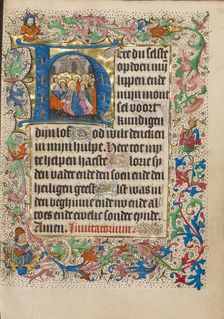 Here du selste
opdoen mij
lippen ende
mijn mont
sel voort
kundigen
dijn lof God wilt dencken
in mijn hulpe Here tot my
te helpen haeste Glorie sy
den vader ende den soen ende den
heiligen geest Als was in
den beghinne ende nv ende al
toes ende ewelic sonder eynde.
Amen. Inuitatorium